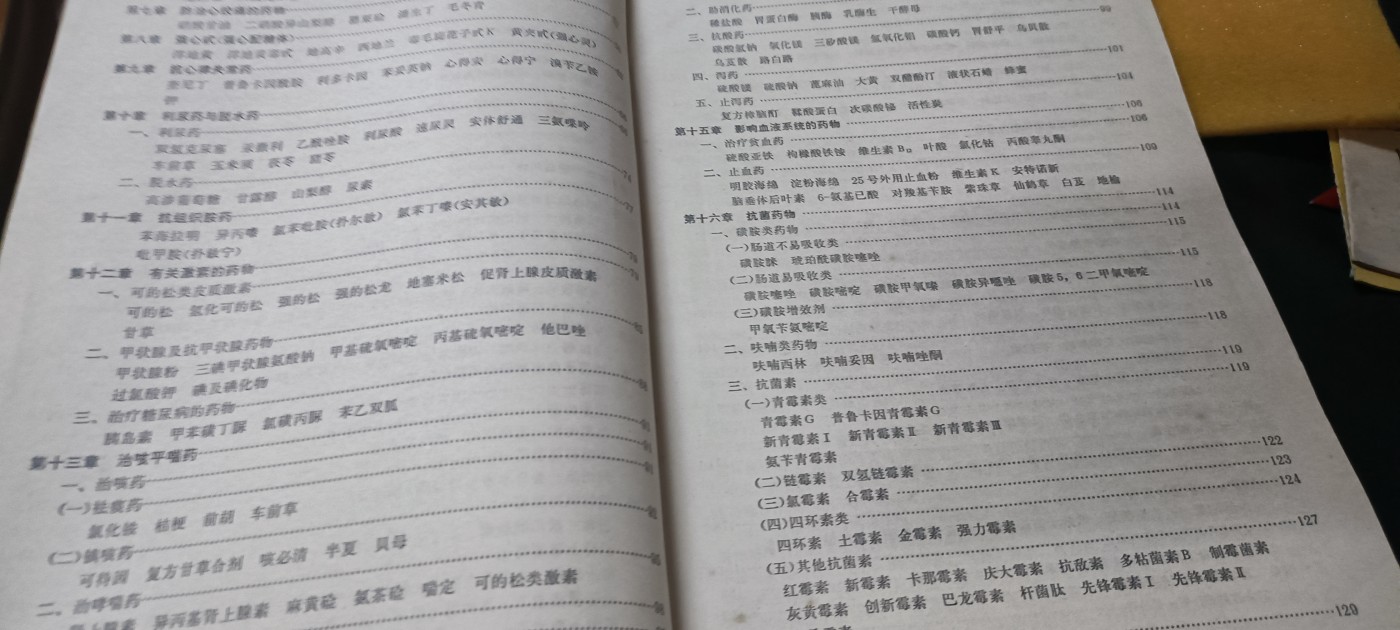 第八章 强心甙(强心配糖体)
第九章 抗心律失常药
奎尼丁 普鲁卡因酰胺 利多卡因 苯妥英钠 心得安 心得宁 溴苄乙铵
钾
第十章 利尿药与脱水药
一、利尿药
双氢克尿塞 汞撒利 乙酰唑胺 利尿酸 速尿灵 安体舒通 三氨喋呤
车前草 玉米须 茯苓
二、脱水药 74
高渗葡萄糖 甘露醇 山梨醇 尿素
第十一章 抗组织胺药 77
苯海拉明 异丙嗪 氯苯吡胺(扑尔敏) 氯苯丁嗪(安其敏)
吡甲胺(扑敏宁)
第十二章 有关激素的药物
一、可的松类皮质激素
可的松 氢化可的松 强的松 强的松龙 地塞米松 促肾上腺皮质激素
甘草
二、甲状腺及抗甲状腺药物
甲状腺粉 三碘甲状腺氨酸钠 甲基硫氧嘧啶 丙基硫氧嘧啶 他巴唑
过氯酸钾 碘及碘化物
三、治疗糖尿病的药物
胰岛素 甲苯磺丁脲 氯磺丙脲 苯乙双胍
第十三章 治咳平喘药
一、治咳药
(一)祛痰药
氯化铵 桔梗 前胡 车前草
(二)镇咳药
可待因 复方甘草合剂 咳必清 半夏 贝母
二、治哮喘药
异丙基肾上腺素 麻黄碱 氨茶碱 喘定 可的松类激素
二、助消化药 99
稀盐酸 胃蛋白酶 胰酶 乳酶生 干酵母
三、抗酸药
碳酸氢钠 氧化镁 三矽酸镁 氢氧化铝 碳酸钙 胃舒平 乌贝散
乌芨散 路白路
四、泻药 101
硫酸镁 硫酸钠 蓖麻油 大黄 双醋酚汀 液状石蜡 蜂蜜
五、止泻药 104
复方樟脑酊 鞣酸蛋白 次碳酸铋 活性炭
第十五章 影响血液系统的药物 106
一、治疗贫血药 106
硫酸亚铁 枸橼酸铁铵 维生素B₁₂ 叶酸 氯化钴 丙酸睾丸酮
二、止血药 109
明胶海绵 淀粉海绵 25号外用止血粉 维生素K 安特诺新
脑垂体后叶素 6-氨基己酸 对羧基苄胺 紫珠草 仙鹤草 白芨 地榆
第十六章 抗菌药物 114
一、磺胺类药物 114
(一)肠道不易吸收类 115
磺胺脒 琥珀酰磺胺噻唑
(二)肠道易吸收类 115
磺胺噻唑 磺胺嘧啶 磺胺甲氧嗪 磺胺异噁唑 磺胺5,6二甲氧嘧啶
(三)磺胺增效剂 118
甲氧苄氨嘧啶
二、呋喃类药物 118
呋喃西林 呋喃妥因 呋喃唑酮
三、抗菌素 119
(一)青霉素类 119
青霉素G 普鲁卡因青霉素G
新青霉素Ⅰ 新青霉素Ⅱ 新青霉素Ⅲ
氨苄青霉素
(二)链霉素 双氢链霉素 122
(三)氯霉素 合霉素 123
(四)四环素类 124
四环素 土霉素 金霉素 强力霉素
(五)其他抗菌素 127
红霉素 新霉素 卡那霉素 庆大霉素 抗敌素 多粘菌素B 制霉菌素
灰黄霉素 创新霉素 巴龙霉素 杆菌肽 先锋霉素Ⅰ 先锋霉素Ⅱ
129